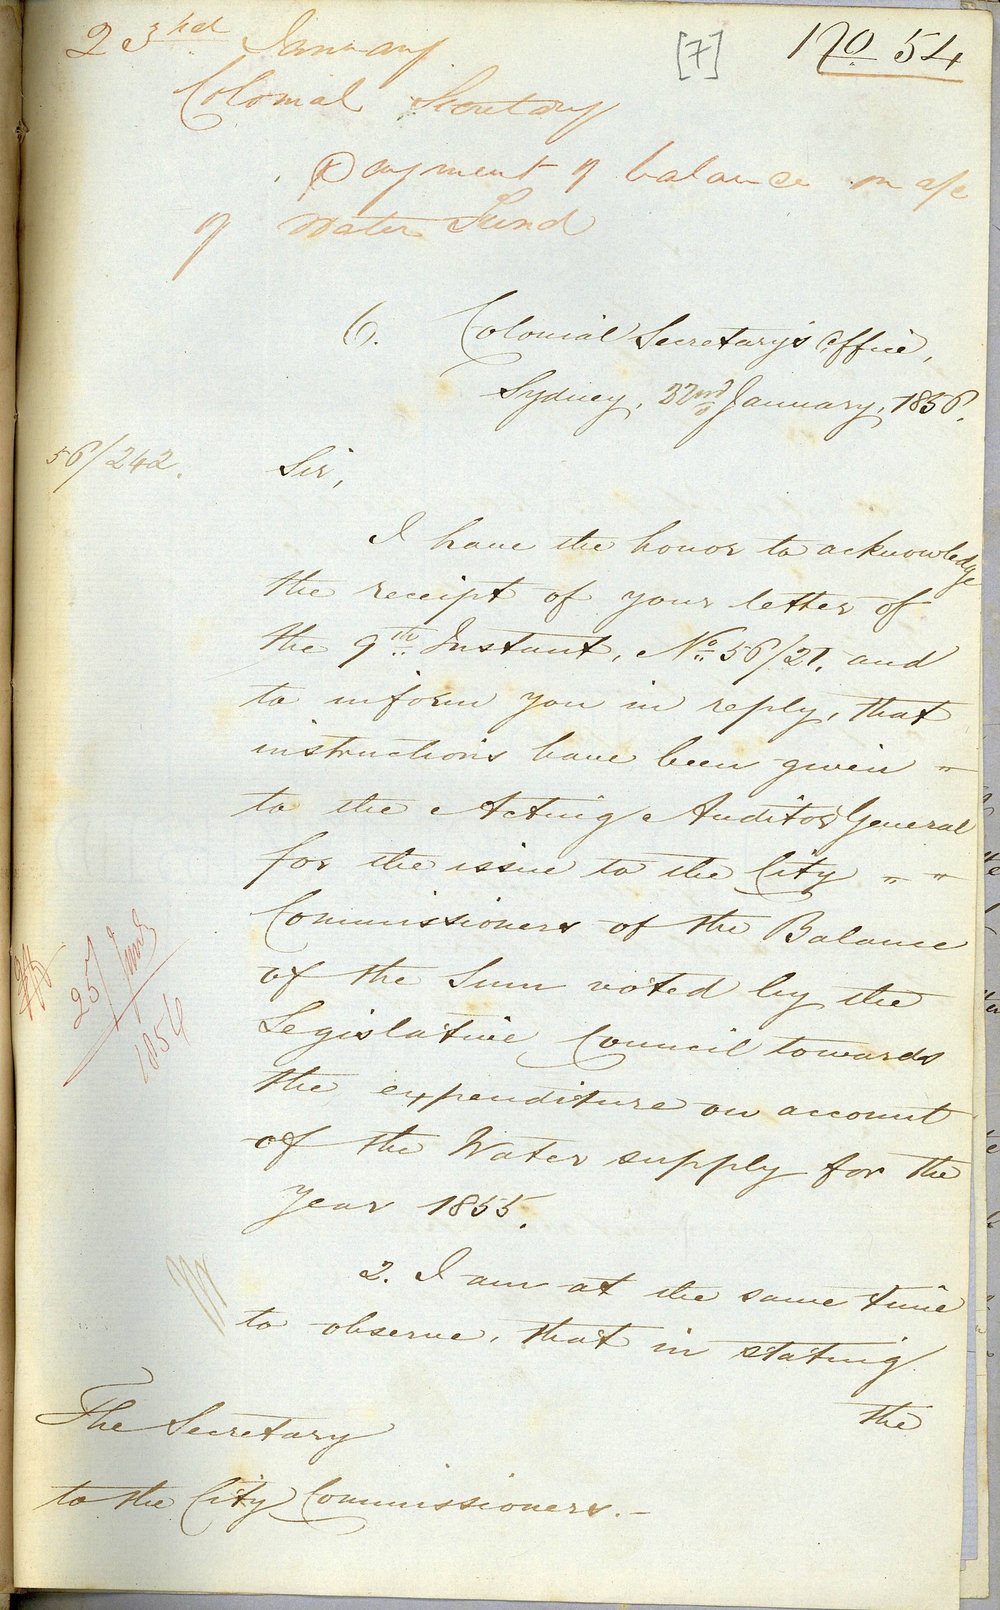 23rd January
[7]
No 54
Colonial Secretary
Payment of balance on a/c
of Water Fund
6. Colonial Secretary's Office,
Sydney, 22nd January, 1856.
56/242.
Sir,
I have the honor to acknowledge
the receipt of your letter of
the 9th Instant, No 56/21, and
to inform you in reply, that
instructions have been given "
to the Acting Auditor General
for the issue to the City " "
Commissioners of the Balance
of the Sum voted by the
Legislative Council towards
the expenditure on account
of the Water supply for the
year 1855.
25
1856
2. I am at the same time
to observe, that in stating
the
The Secretary
to the City Commissioners. —